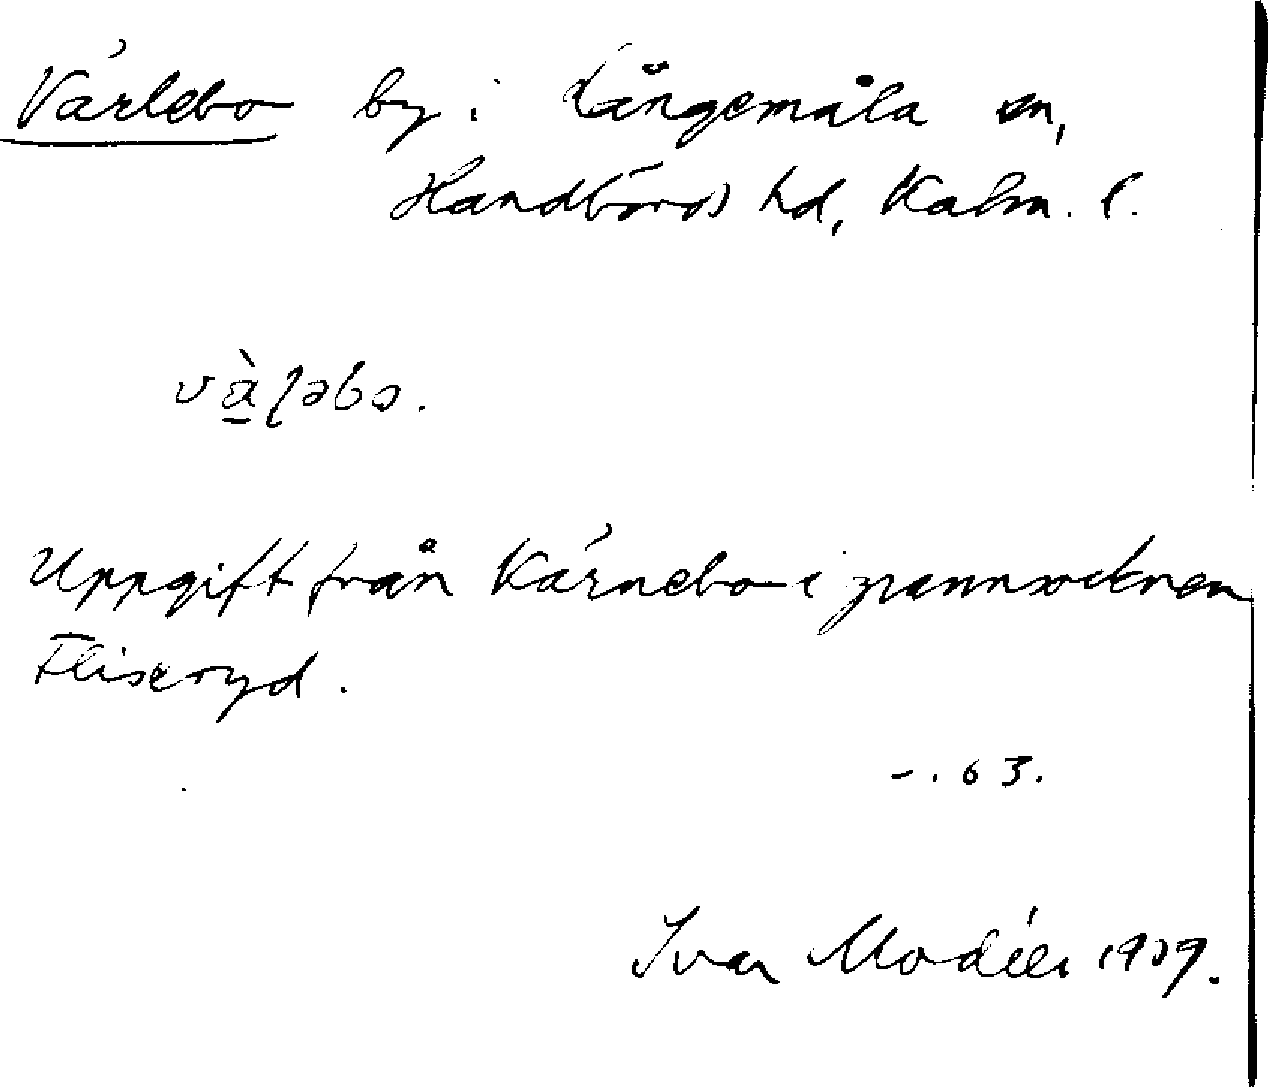 Värlebo by i Långemåla sn,
Handbörds hd, Kalm. l.
và̱ɭəbo.
Uppgift från Kärnebo i grannsocknen
Fliseryd.
–. 63.
Ivar Modéer 1929.